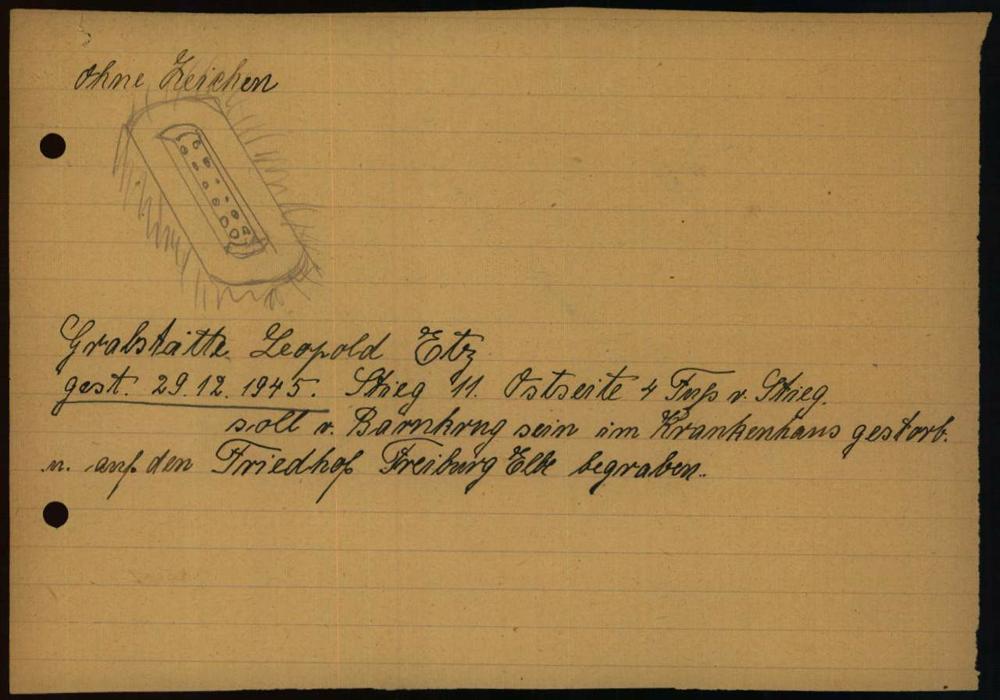 ohne Zeichen
Grabstätte Leopold Etz
gest. 29.12.1945. Stieg 11. Ostseite 4 Fuß v. Stieg.
soll v. Barnkrug sein im Krankenhaus gestorb.
u. auf den Friedhof Freiburg Elbe begraben.